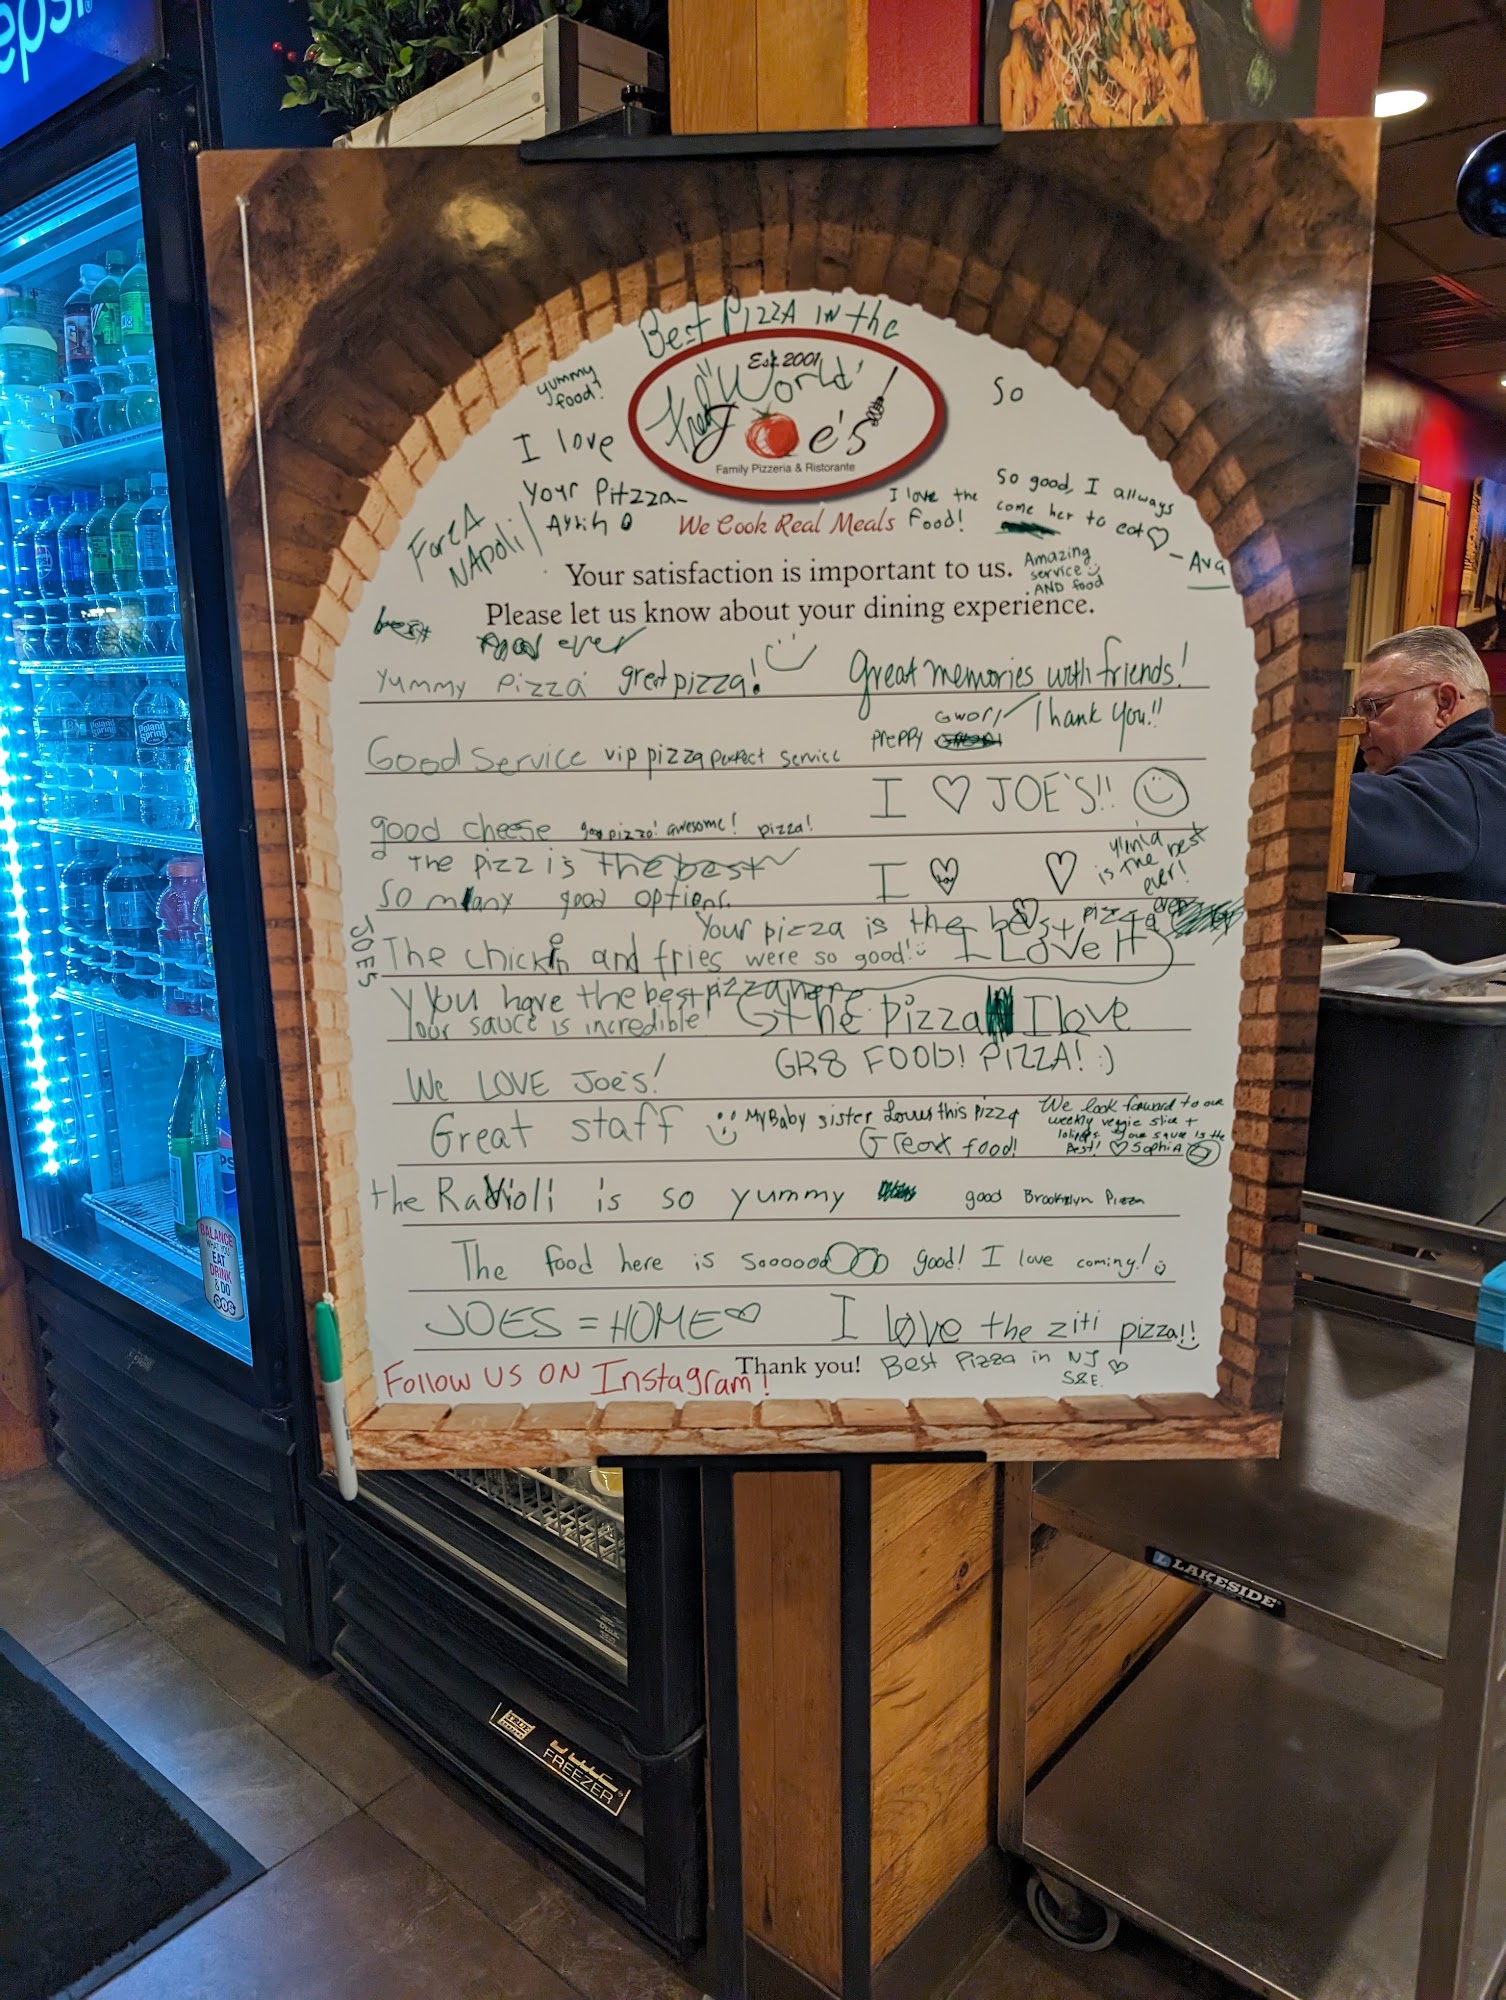 epsi
Best Pizza in the
"World"
Est. 2001
Joe's
Family Pizzeria & Ristorante
We Cook Real Meals
yummy
food!
So
I love
Your Pitzza
I love the
Food!
So good, I allways
come her to eat♡
- Ava
ForzA
NApoli
Your satisfaction is important to us.
Amazing
service
AND food
Please let us know about your dining experience.
best
food ever
Yummy Pizza great pizza!
Great memories with friends!
Thank you!!
preppy
Good Service vip pizza perfect service
I ♡ JOE'S!!
good cheese
pizza! awesome! pizza!
The pizz is the best
I ♡ ♡
is the best
ever!
So many good options.
Your pizza is the best pizza ever
JOES
The chickin and fries were so good! I Love it
You have the best pizza here
Your sauce is incredible!
the pizza I love
GR8 FOOD! PIZZA! :)
We LOVE Joe's!
Great staff
My Baby sister Loves this pizza
Great food!
We look forward to our
weekly veggie slice +
your sauce is the
Best! ♡ Sophia
the Ravioli is so yummy
good Brooklyn Pizza
The food here is sooooooOOO good! I love coming!
JOES = HOME♡
I love the ziti pizza!!
Follow us on Instagram!
Thank you!
Best Pizza in NJ ♡
S&E.
Poland
Spring
BALANCE
WHAT YOU
EAT
DRINK
& DO
LAKESIDE
TRUE
FREEZER